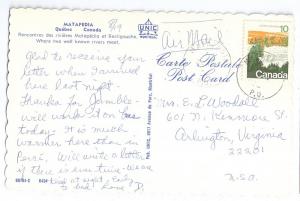 MATAPEDIA
Québec Canada
Rencontres des rivières Matapédia et Restigouche,
Where two well known rivers meet.
UNIC
Air Mail
10
Carte Postale
Post Card
Glad to receive your
letter when I arrived
here last night.
Thanks for Jamble -
will work it on bus
today. It is much
warmer here than in
Percé. Will write a letter
if there is ever time - we are
kept at night. Early
to bed! Love, D.
Mrs. E. L. Woodall
601 N. Kenmore St.
Arlington, Virginia
22201
U.S.A.